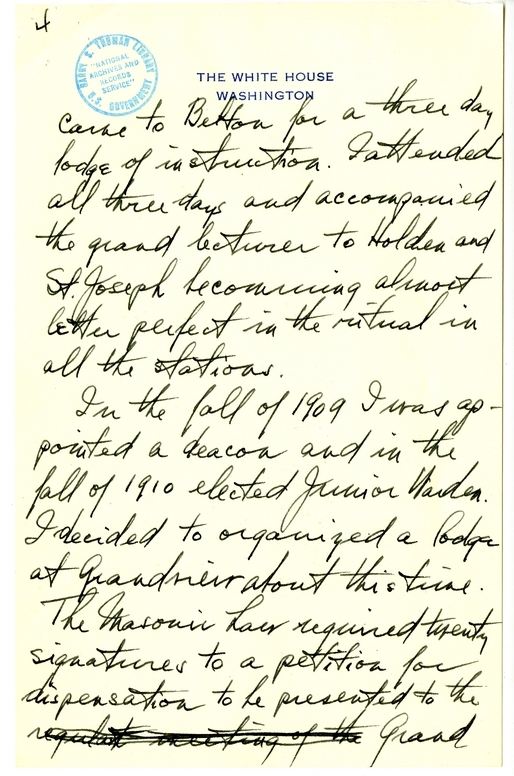 4
HARRY S. TRUMAN LIBRARY
"NATIONAL
ARCHIVES AND
RECORDS
SERVICE"
U.S. GOVERNMENT
THE WHITE HOUSE
WASHINGTON
came to Belton for a three day
lodge of instruction. I attended
all three days and accompanied
the grand lecturer to Holden and
St. Joseph becomming almost
letter perfect in the ritual in
all the stations.
In the fall of 1909 I was ap-
pointed a deacon and in the
fall of 1910 elected Junior Warden.
I decided to organized a lodge
at Grandview about this time.
The Masonic law required twenty
signatures to a petition for
dispensation to be presented to the
regular meeting of the Grand